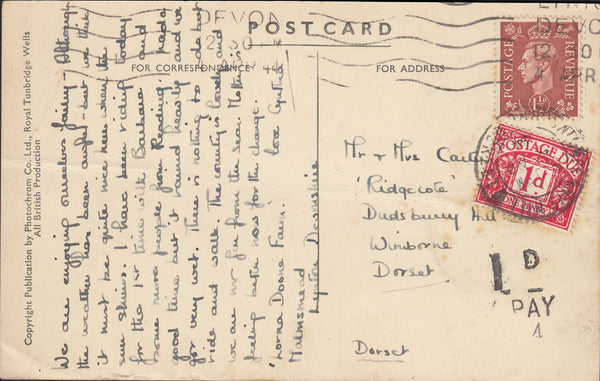 POST CARD
FOR CORRESPONDENCE
FOR ADDRESS
Copyright Publication by Photochrom Co. Ltd., Royal Tunbridge Wells
All British Production
We are enjoying ourselves fairly. Although
the weather has been awful - but we think
it must be quite nice here when the
sun shines. I have been riding today
for the 1st time with Barbara and
some more people from Reading. had a
good time but it rained heavily and we
got very wet. There is nothing to do but
ride and walk. The country is lovely and
we are not far from the sea. Mother is
feeling better now for the change.
"Lorna Doone Farm" love
Malmsmead
Lynton Devonshire
Mr & Mrs
"Ridgecote"
Dudsbury Hill
Winborne
Dorset
Dorset
POSTAGE
REVENUE
1½D
DEVON
LYNTON
DEVON
APR
POSTAGE DUE
1d
ONE PENNY
1D
PAY
4